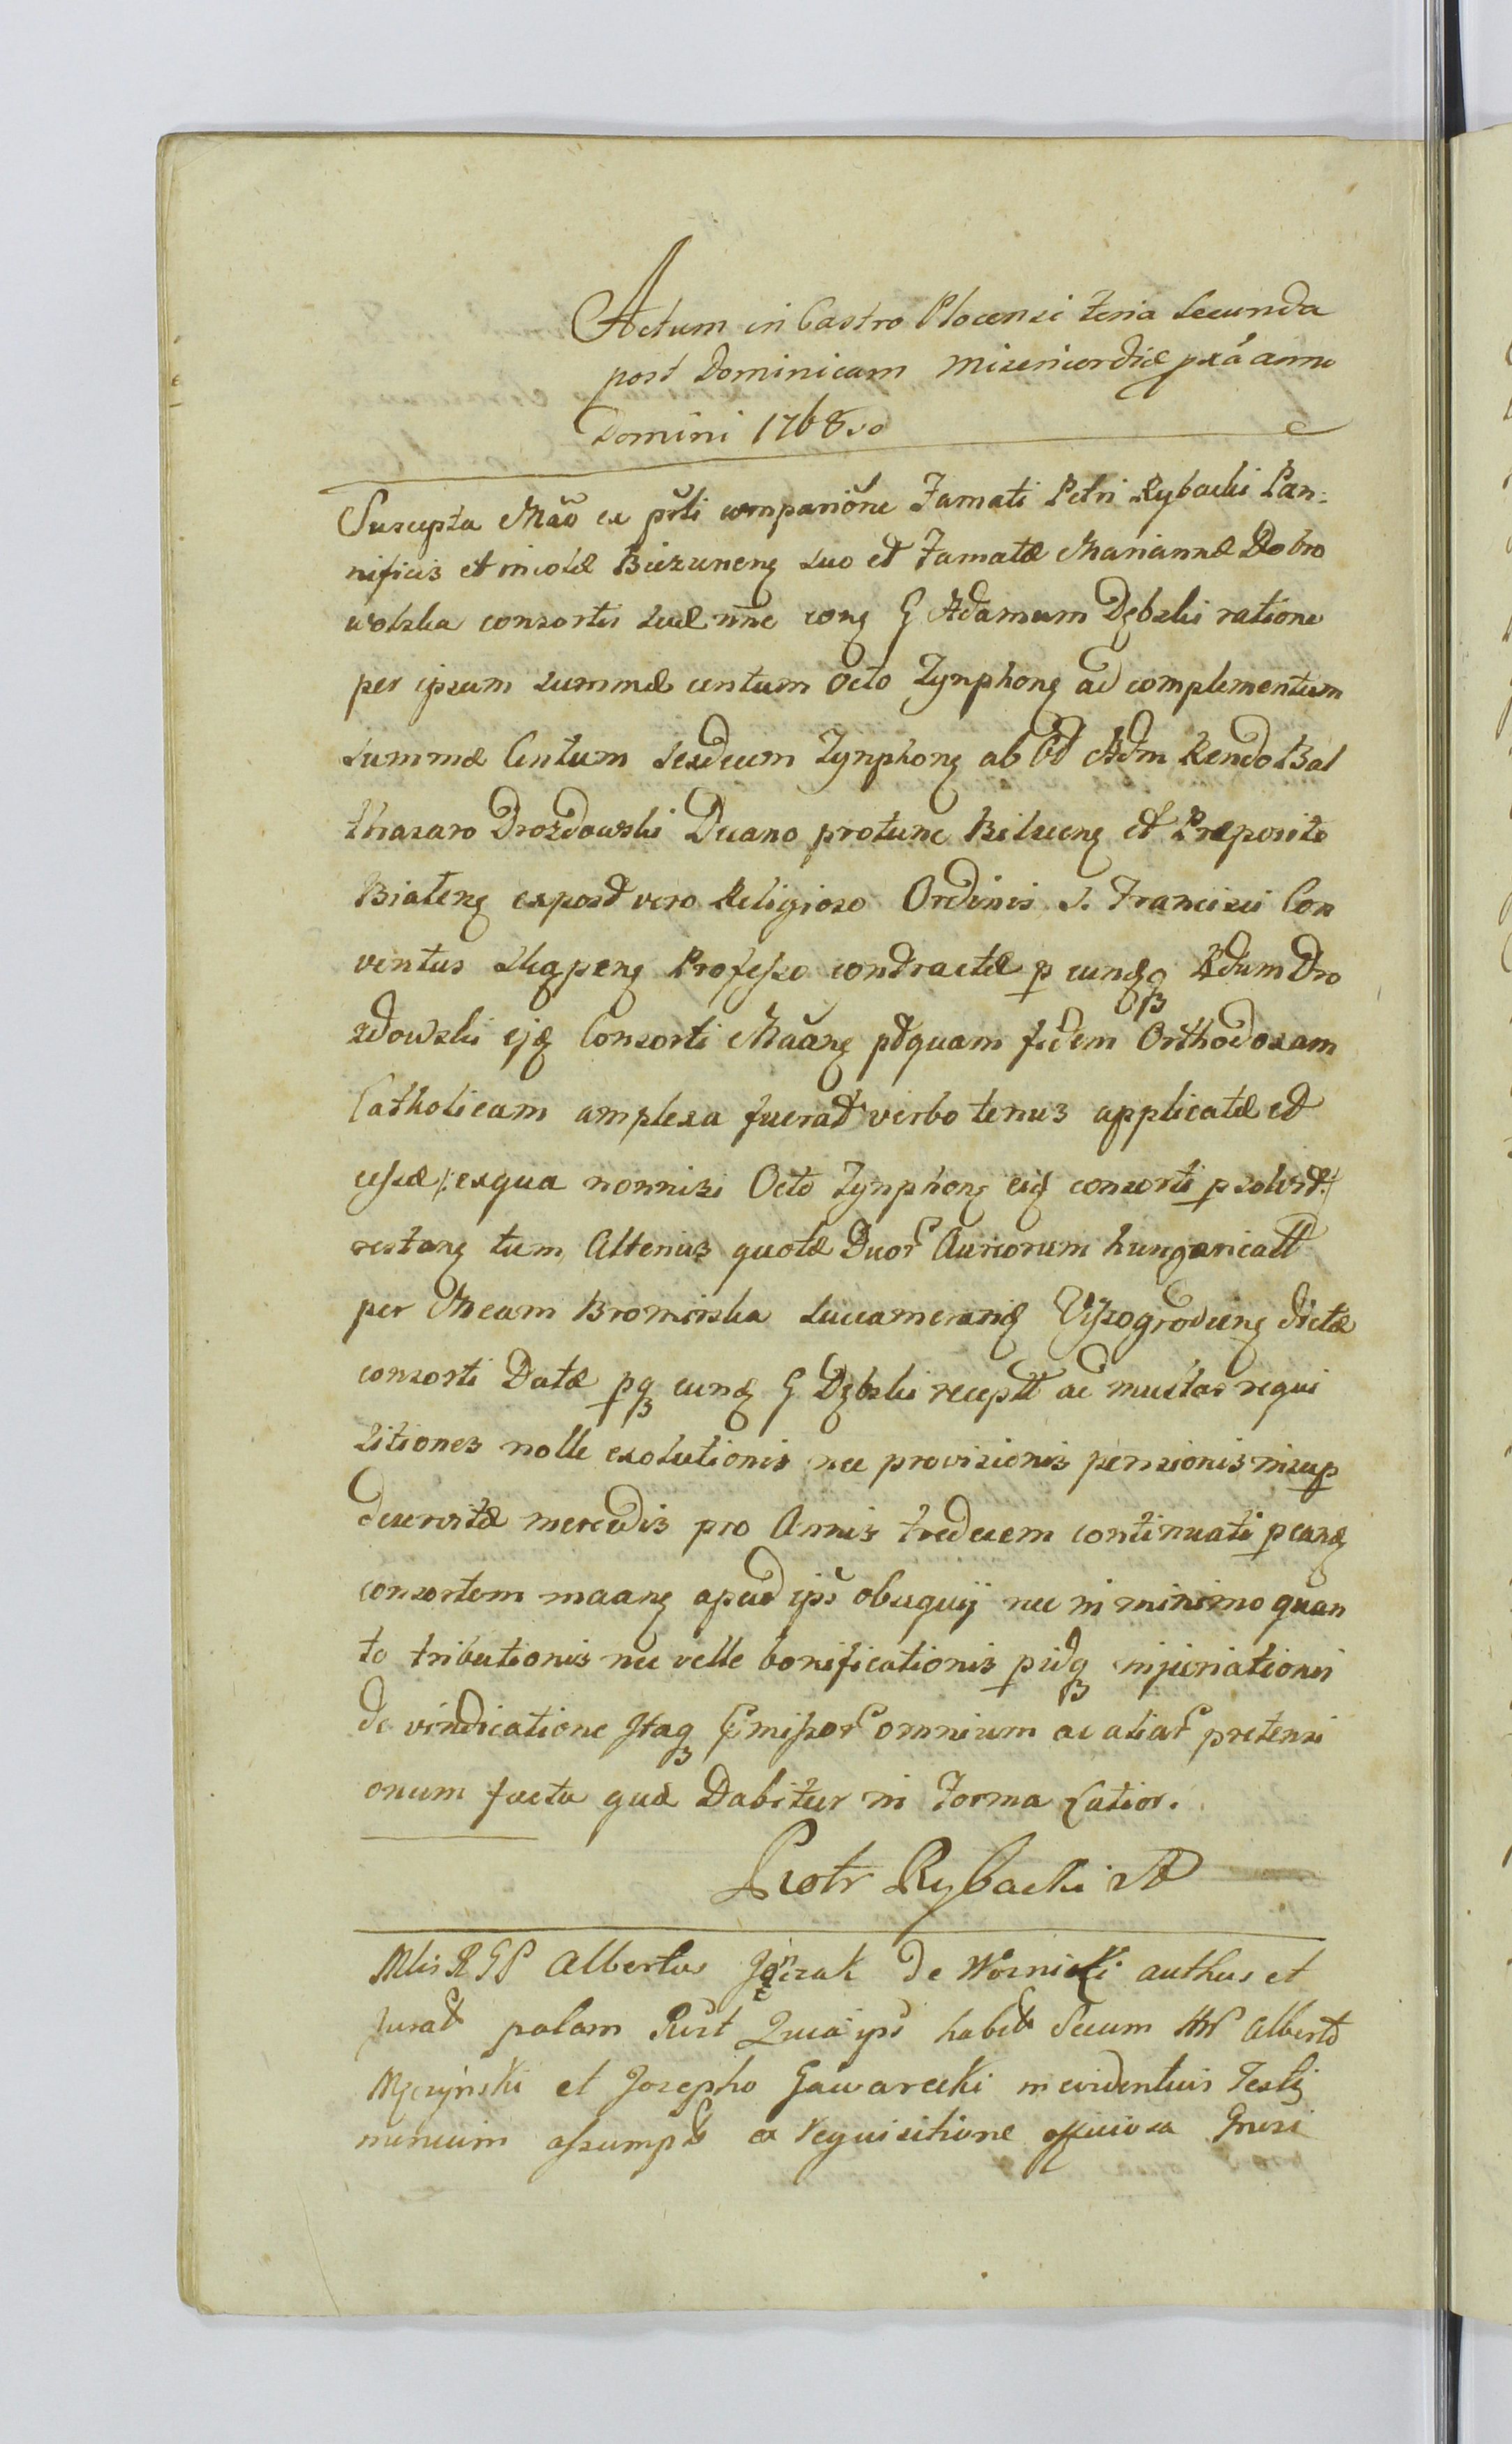 Actum in Castro Plocensi Feria Secunda
post Dominicam Misericordiæ pxá anno
Domini 1768vo
Suscepta Mão ex prti comparitõne Famati Petri Rybacki Pan:
nificis et incolæ Biezunens suo et Famatæ Mariannæ Dobro
wolska consortis suæ nne cons G Adamum Dębski ratione
per ipsum summæ centum Octo Tynphons ad complementum
summæ Centum sexdecem Tynphons ab Adm Rendo Bal
thasaro Drozdowski Decano protunc Bielscens et Præposito
Bialens expost vero Religioso Ordinis S. Francisci Con
ventus Skępens Professo contractæ p eundq Rdum Dro
zdowski ejq Consorti Maans ptquam fidem Orthodoxam
Catholicam amplexa fuerat verbo tenus applicatæ et
cessæ /: exqua nonnisi Octo Tynphons eiq consorti psolvit :/
restans tum Alterius quotæ Duor Aureorum hungaricall
per Mcam Bromirska Succamerariq Vissogrodiens dictæ
consorti Datæ pq eunq G Dębski recept ac multas requi
sitiones nolle exolutionis nec provisionis pensionis insup
decursitæ mercedis pro Annis tredecem continuati p eanq
consortem maans apud ips obsequij nec in minimo quan
to tributionis nec velle bonificationis pidq injuriationis
de vindicatione Itaq Pmissor omnium ac aliar pretensi
onum facta quæ Dabitur in Forma Latior.
Piotr Rybacki
Mlis RGP Albertus Jęczak de Woznicki authus et
jurat palam Rcit Quia ips habit Secum HN Alberto
Męczyński et Josepho Gawarecki in evidentius Testi
monium assumpt ex requisitione officiosa Gnrsi